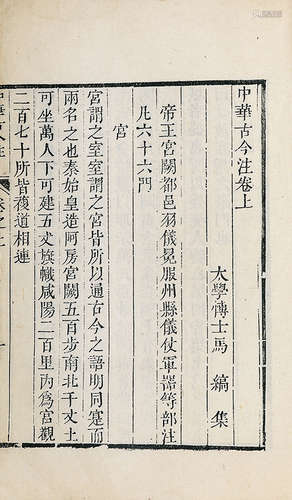 中華古今注卷上
太學博士馬 縞 集
帝王宮闕都邑羽儀冕服州縣儀仗軍器等部注
凡六十六門
宮
宮謂之室室謂之宮皆所以通古今之語明同實而
兩名之也秦始皇造阿房宮闕五百步南北千丈上
可坐萬人下可建五丈旗幟咸陽二百里內為宮觀
二百七十所皆複道相連